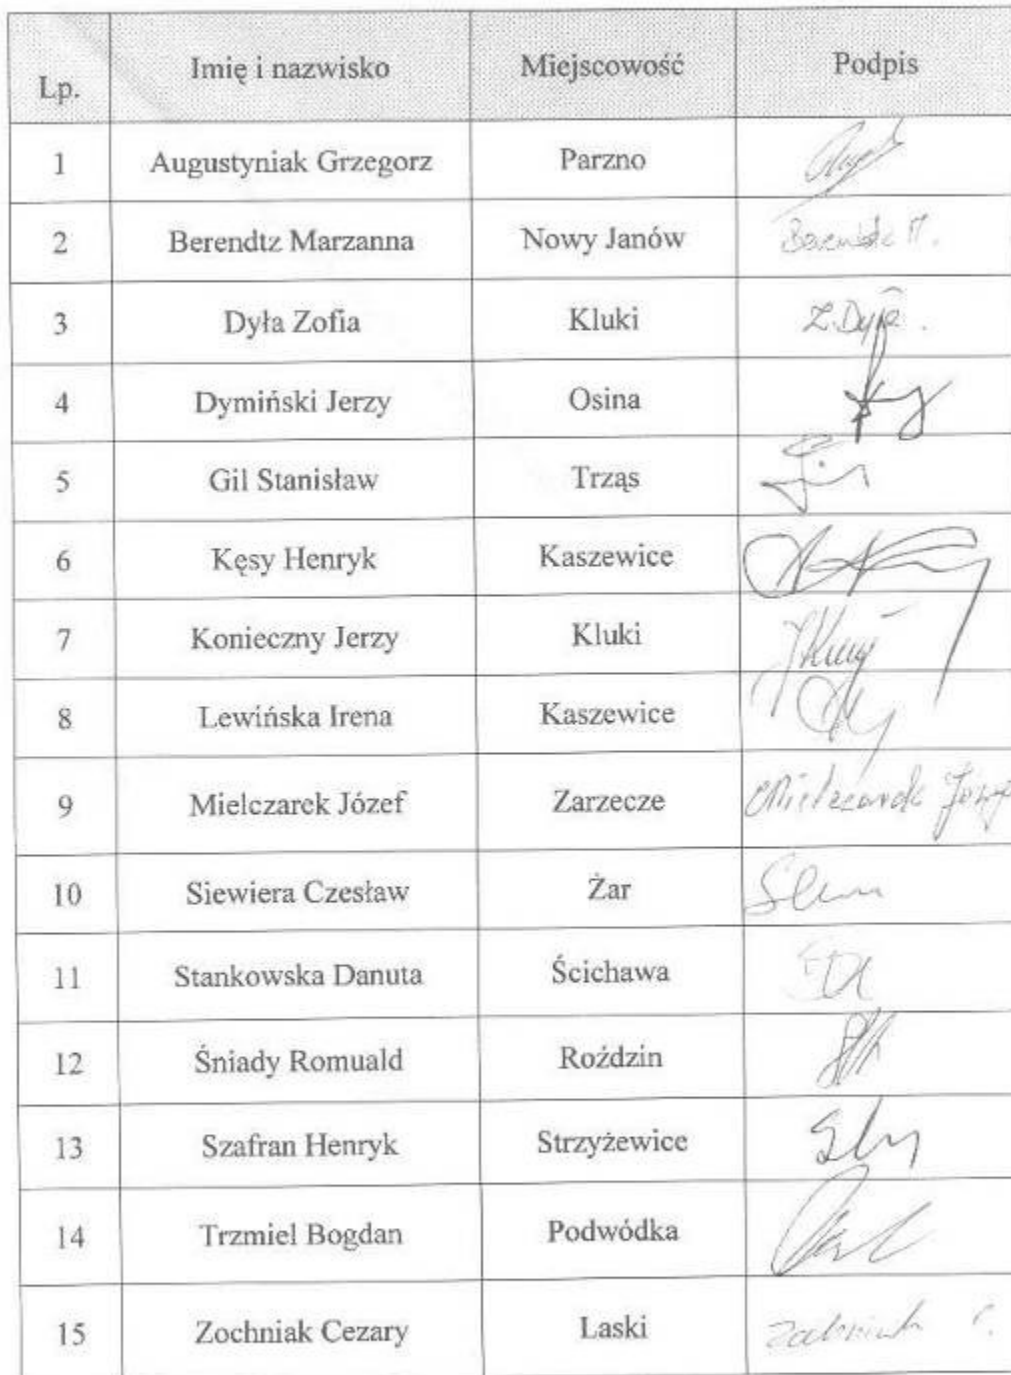 Lp. Imię i nazwisko Miejscowość Podpis
1 Augustyniak Grzegorz Parzno
2 Berendtz Marzanna Nowy Janów
3 Dyła Zofia Kluki Z. Dyła
4 Dymiński Jerzy Osina
5 Gil Stanisław Trząs
6 Kęsy Henryk Kaszewice
7 Konieczny Jerzy Kluki
8 Lewińska Irena Kaszewice
9 Mielczarek Józef Zarzecze Mielczarek Józef
10 Siewiera Czesław Żar
11 Stankowska Danuta Ścichawa
12 Śniady Romuald Roździn
13 Szafran Henryk Strzyżewice
14 Trzmiel Bogdan Podwódka
15 Zochniak Cezary Laski